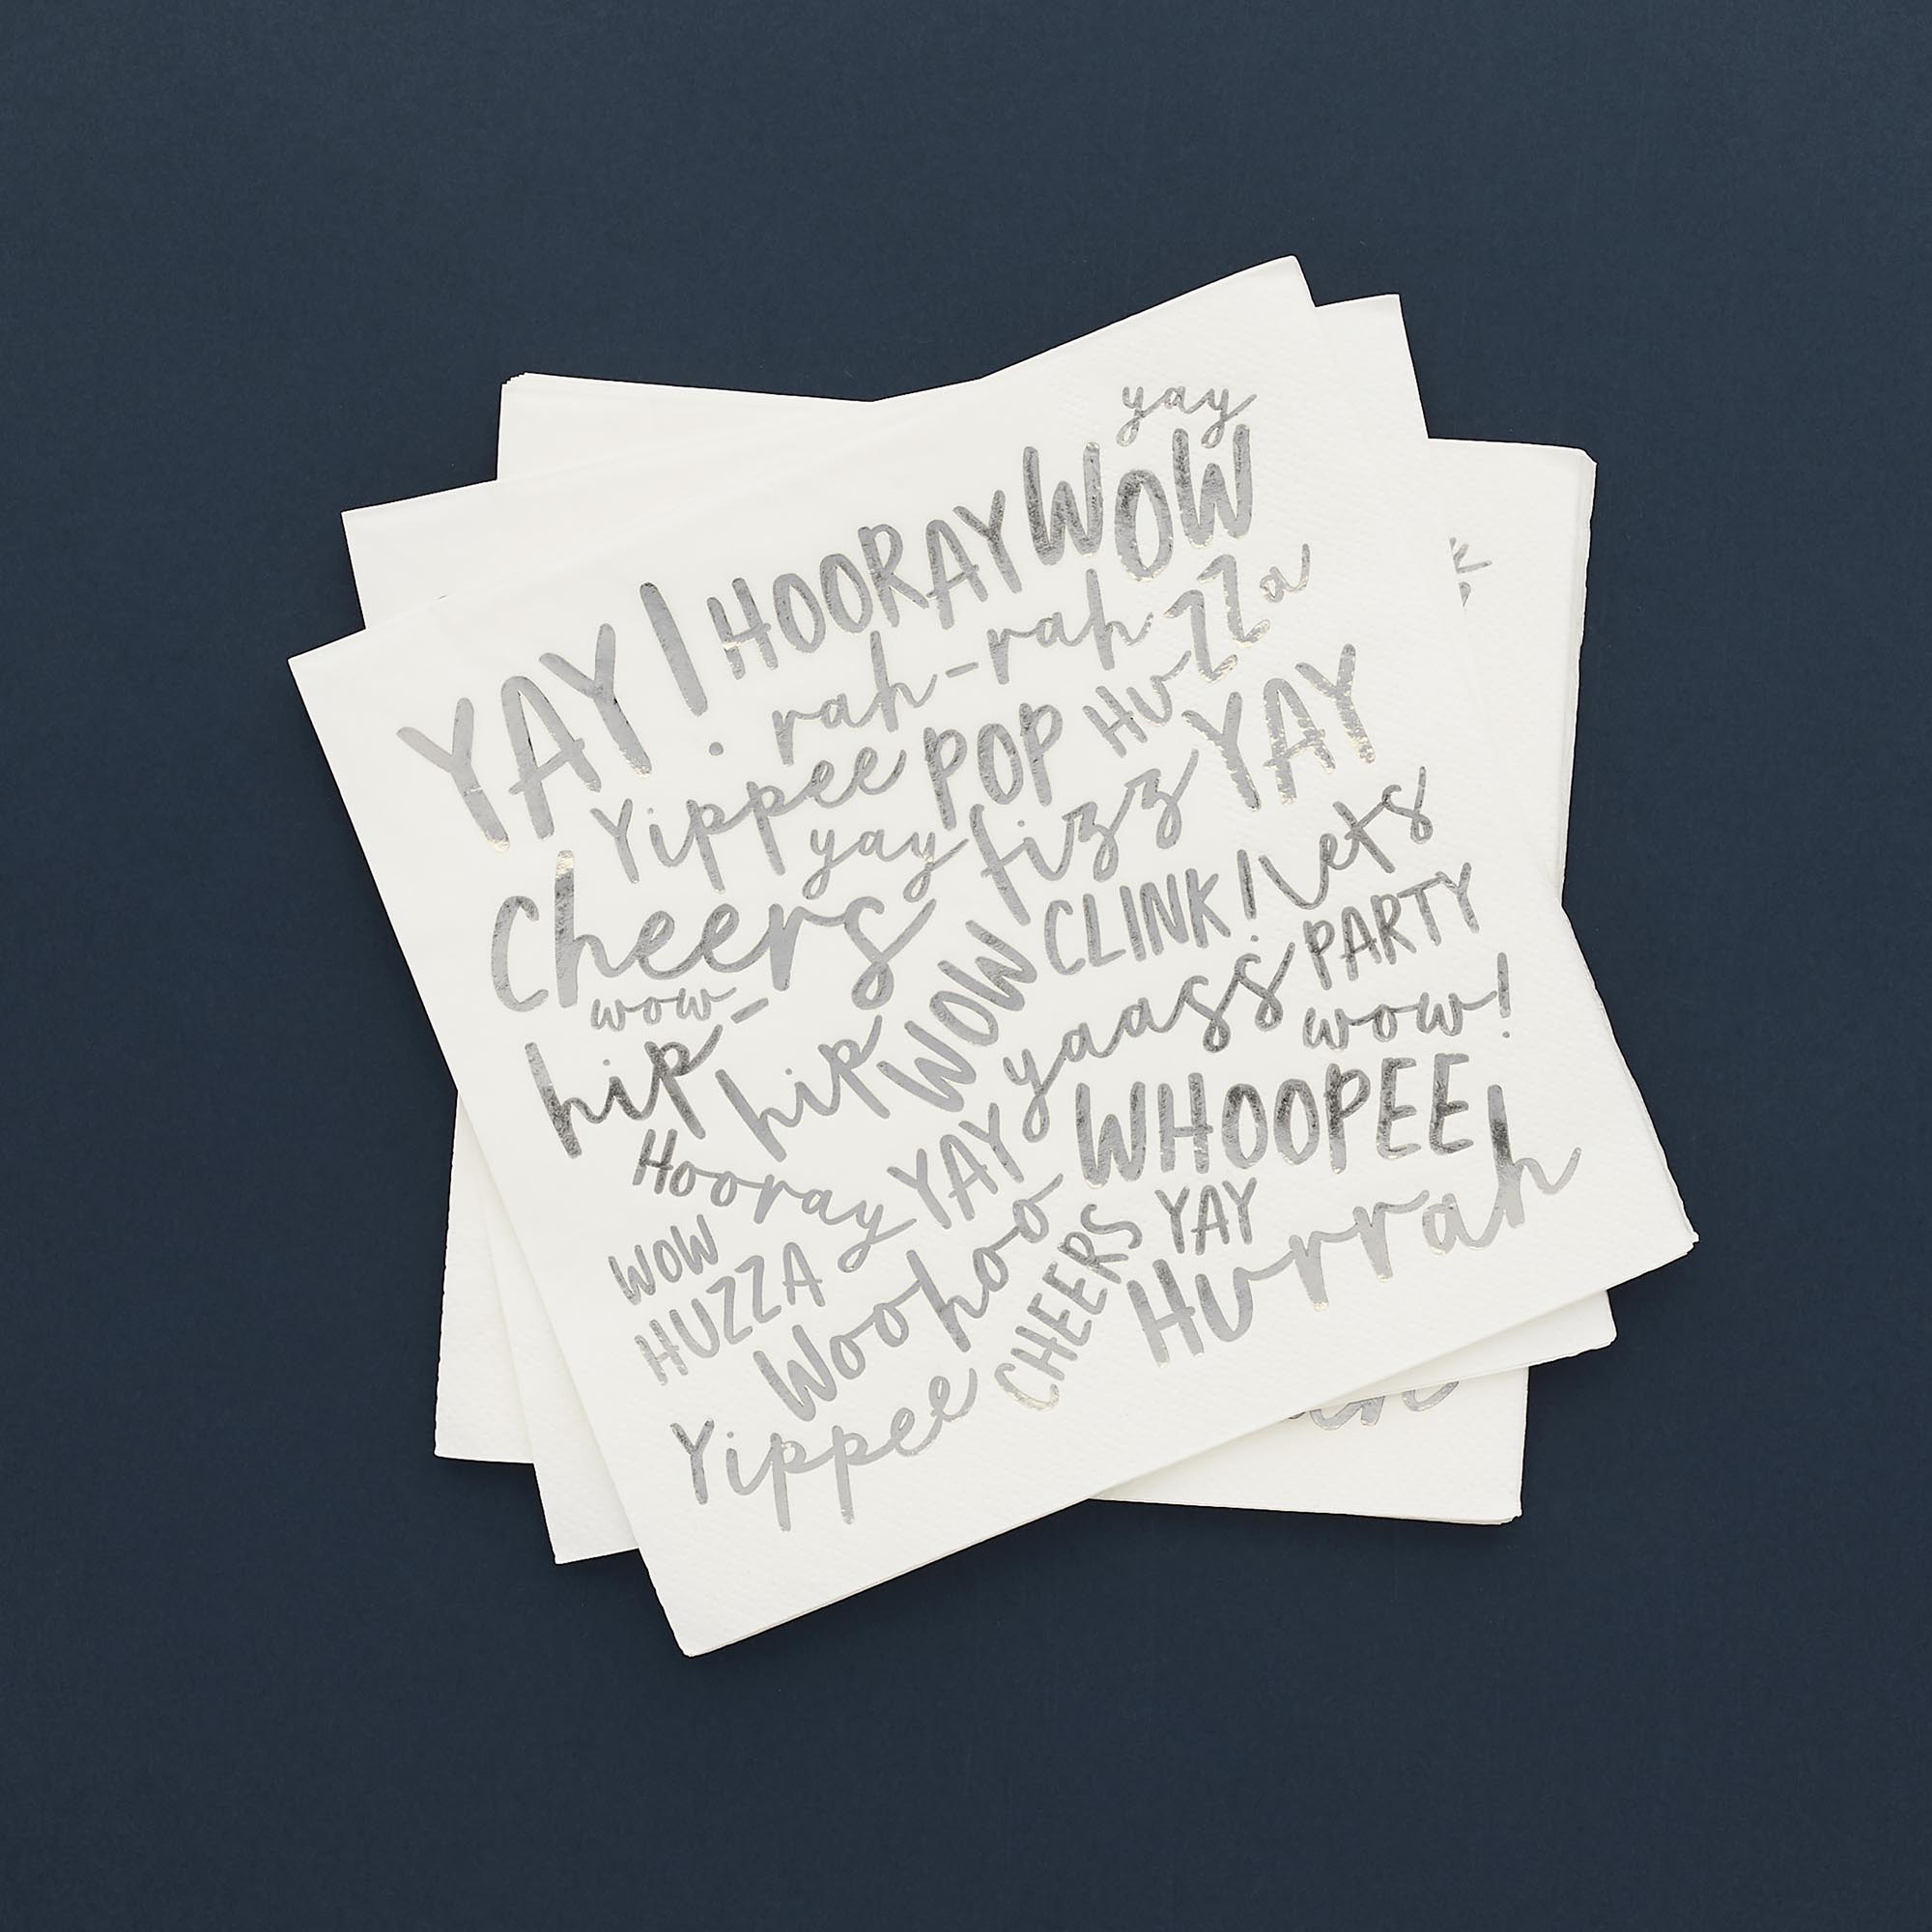 yay
YAY! HOORAY WOW
rah-rah HuZZa
Yippee POP YAY
yay fizz
Cheers CLINK! Let's
wow WOW PARTY
hip-hip yaass wow!
Hooray YAY WHOOPEE
WOW
HUZZA Woohoo CHEERS YAY Hurrah
Yippee